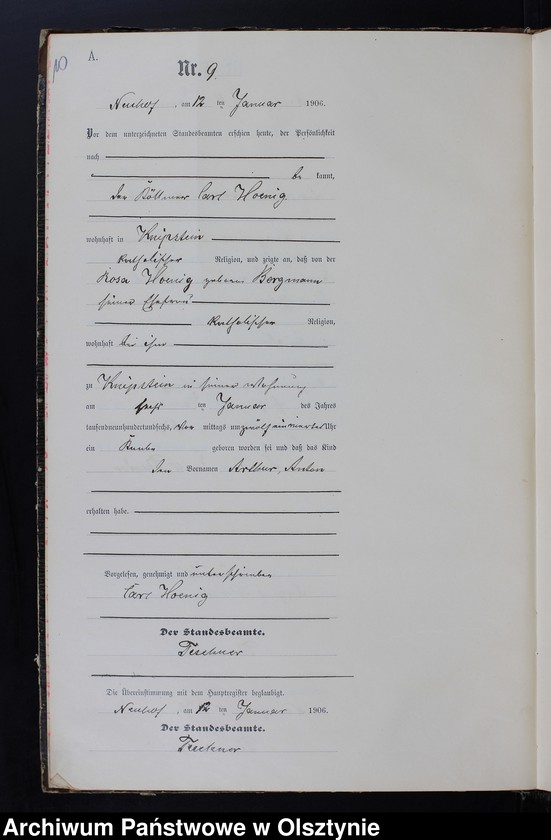 10
A.
Nr. 9.
Neuhof, am 12 ten Januar 1906.
Vor dem unterzeichneten Standesbeamten erschien heute, der Persönlichkeit
nach
be kannt,
der Köllmer Carl Hoenig
wohnhaft in Knipstein
katholischer Religion, und zeigte an, daß von der
Rosa Hoenig geborene Bergmann
seiner Ehefrau
katholischer Religion,
wohnhaft bei ihm
zu Knipstein in seiner Wohnung
am ten Januar des Jahres
tausendneunhundertundsechs, Vor mittags um zwölfeinviertel Uhr
ein Knabe geboren worden sei und daß das Kind
den Vornamen Arthur, Anton
erhalten habe.
Vorgelesen, genehmigt und unterschrieben
Carl Hoenig
Der Standesbeamte.
Teschner
Die Übereinstimmung mit dem Hauptregister beglaubigt.
Neuhof, am 12 ten Januar 1906.
Der Standesbeamte.
Teschner
Archiwum Państwowe w Olsztynie